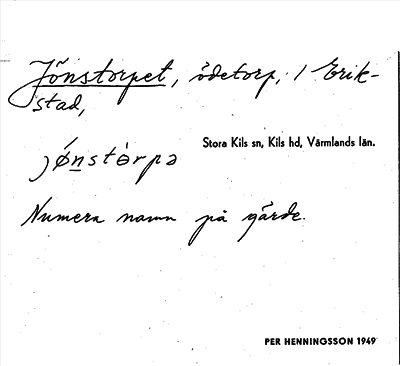 Jönstorpet, ödetorp, i Erik-
stad,
Stora Kils sn, Kils hd, Värmlands län.
jǿnstòrpə
Numera namn på gärde.
PER HENNINGSSON 1949